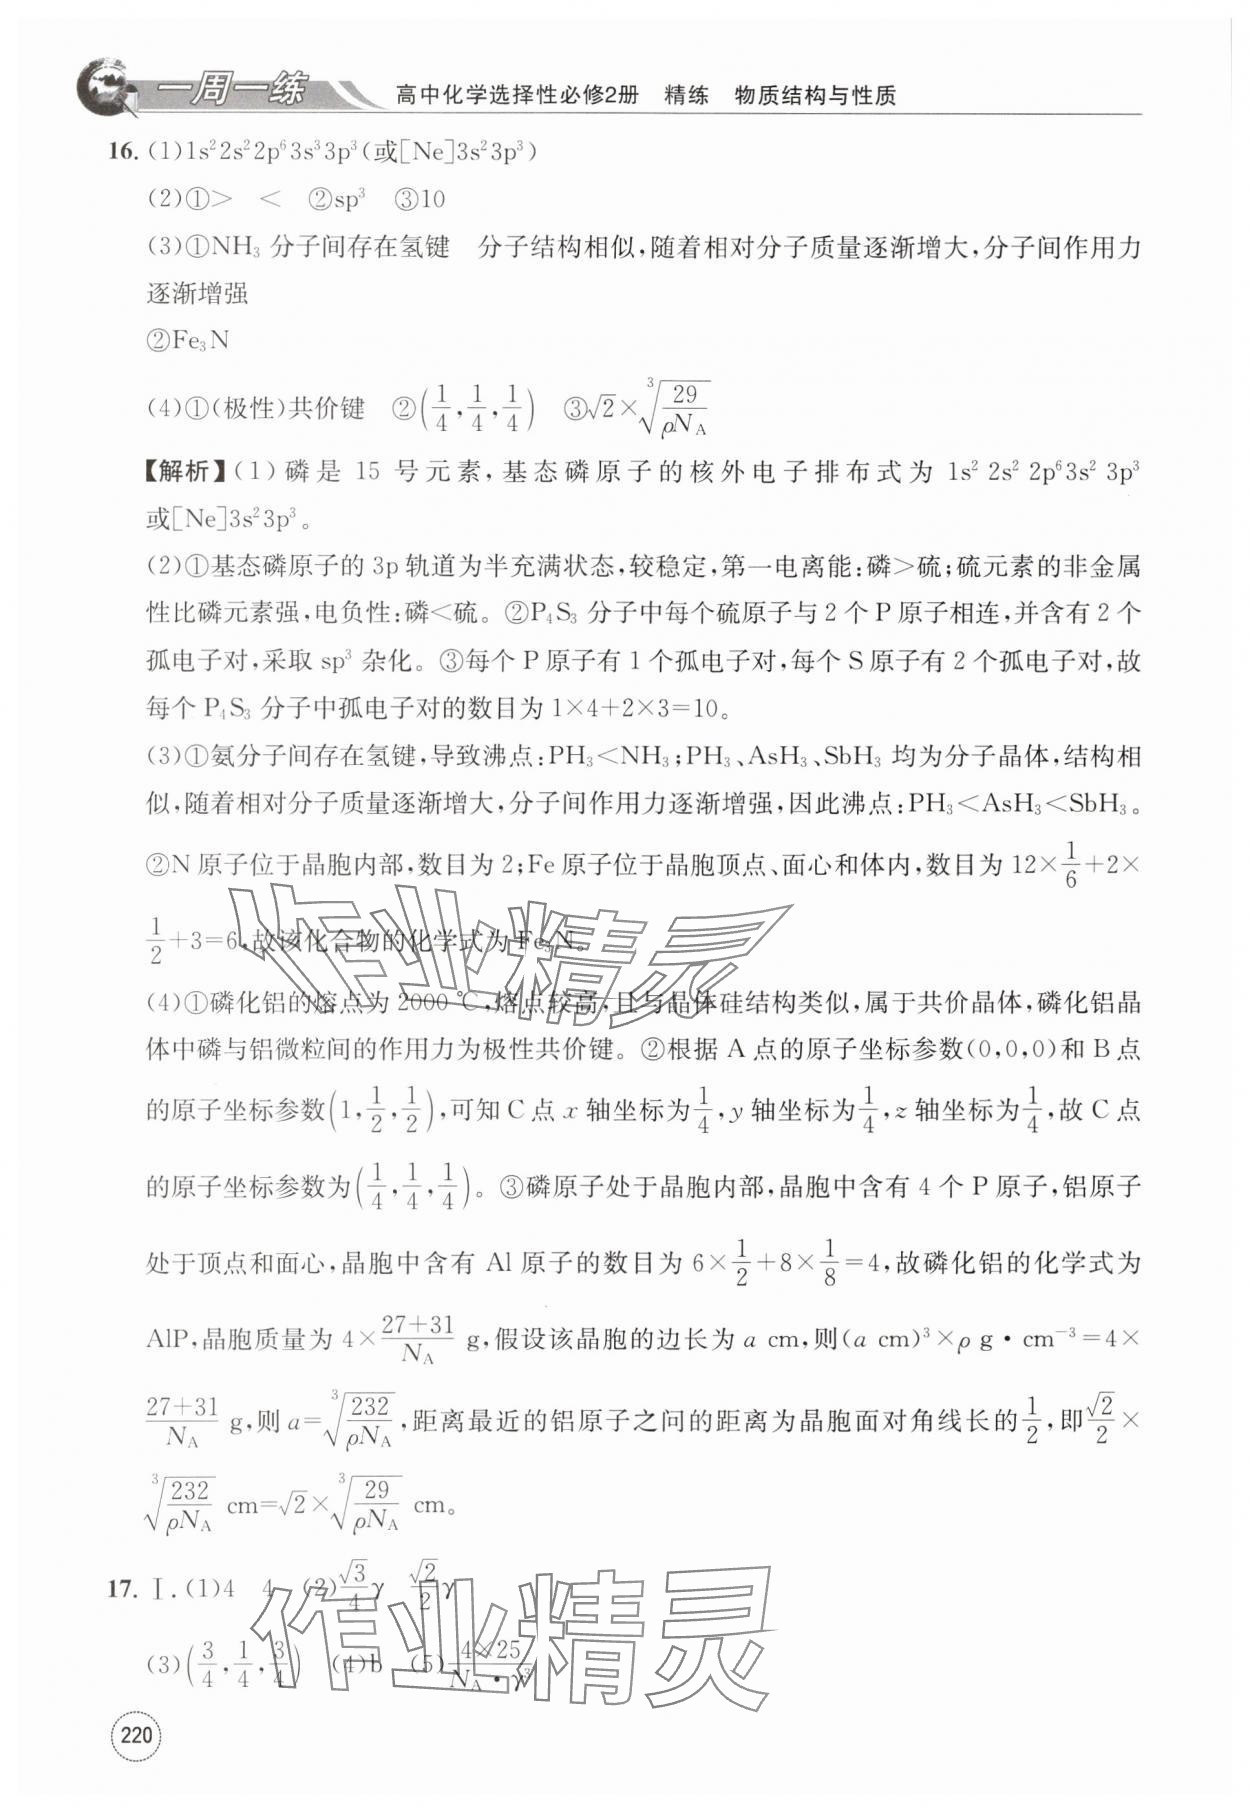 一周一练 高中化学选择性必修2册 精练 物质结构与性质
16. (1)1s²2s²2p⁶3s³3p³(或[Ne]3s²3p³)
(2)①> < ②sp³ ③10
(3)①NH₃ 分子间存在氢键 分子结构相似,随着相对分子质量逐渐增大,分子间作用力
逐渐增强
②Fe₃N
(4)①(极性)共价键 ②(1/4,1/4,1/4) ③√2×∛(29/ρN_A)
【解析】(1)磷是 15 号元素,基态磷原子的核外电子排布式为 1s²2s²2p⁶3s²3p³
或[Ne]3s²3p³。
(2)①基态磷原子的 3p 轨道为半充满状态,较稳定,第一电离能:磷>硫;硫元素的非金属
性比磷元素强,电负性:磷<硫。②P₄S₃ 分子中每个硫原子与 2 个 P 原子相连,并含有 2 个
孤电子对,采取 sp³ 杂化。③每个 P 原子有 1 个孤电子对,每个 S 原子有 2 个孤电子对,故
每个 P₄S₃ 分子中孤电子对的数目为 1×4+2×3=10。
(3)①氨分子间存在氢键,导致沸点:PH₃<NH₃;PH₃、AsH₃、SbH₃ 均为分子晶体,结构相
似,随着相对分子质量逐渐增大,分子间作用力逐渐增强,因此沸点:PH₃<AsH₃<SbH₃。
②N 原子位于晶胞内部,数目为 2;Fe 原子位于晶胞顶点、面心和体内,数目为 12×1/6+2×
1/2+3=6,故该化合物的化学式为 Fe₃N。
(4)①磷化铝的熔点为 2000 ℃,熔点较高,且与晶体硅结构类似,属于共价晶体,磷化铝晶
体中磷与铝微粒间的作用力为极性共价键。②根据 A 点的原子坐标参数(0,0,0)和 B 点
的原子坐标参数(1,1/2,1/2),可知 C 点 x 轴坐标为1/4,y 轴坐标为1/4,z 轴坐标为1/4,故 C 点
的原子坐标参数为(1/4,1/4,1/4)。③磷原子处于晶胞内部,晶胞中含有 4 个 P 原子,铝原子
处于顶点和面心,晶胞中含有 Al 原子的数目为 6×1/2+8×1/8=4,故磷化铝的化学式为
AlP,晶胞质量为 4×(27+31)/N_A g,假设该晶胞的边长为 a cm,则(a cm)³×ρ g·cm⁻³=4×
(27+31)/N_A g,则 a=∛(232/ρN_A),距离最近的铝原子之问的距离为晶胞面对角线长的1/2,即√2/2×
∛(232/ρN_A) cm=√2×∛(29/ρN_A) cm。
17. Ⅰ.(1)4 4 (2)√3/4γ √2/2γ
(3)(3/4,1/4,3/4) (4)b (5)(4×25)/(N_A·γ³)
220
作业精灵
作业精灵